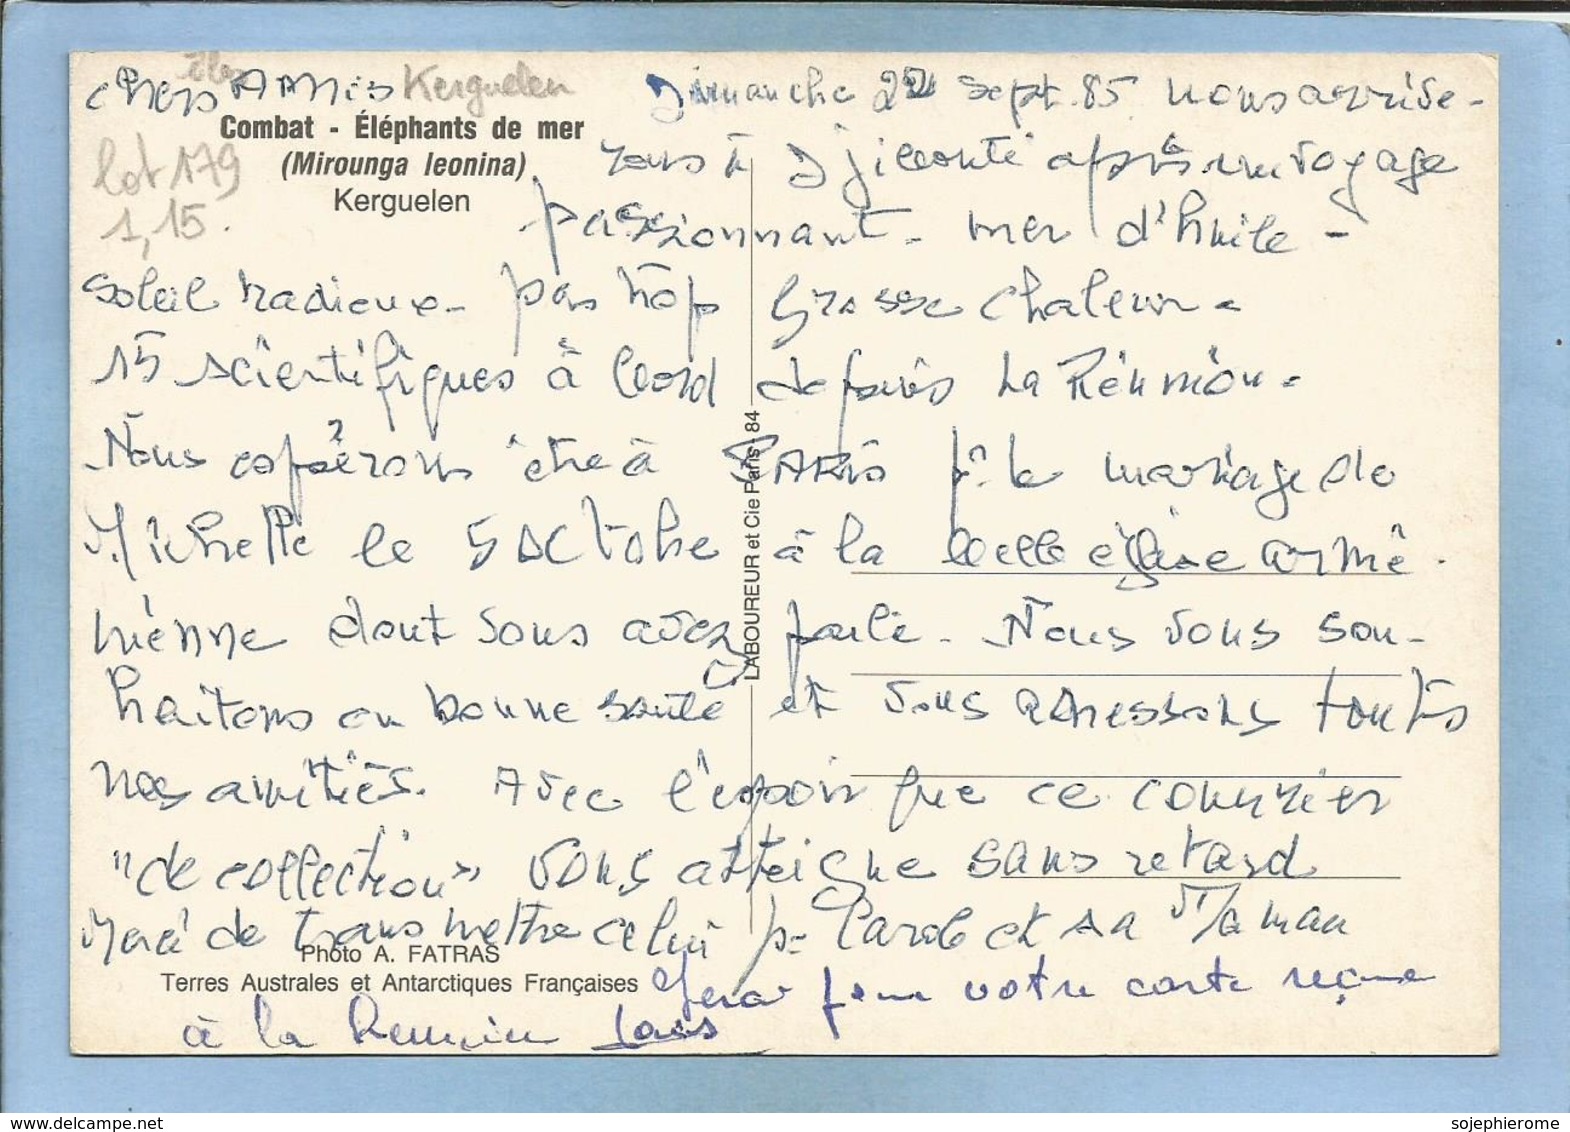 chers AMis
îles Kerguelen
lot 179
1,15.
Combat - Éléphants de mer
(Mirounga leonina)
Kerguelen
Dimanche 22 Sept. 85 nous arrive-
rons à Djibouti après un voyage
passionnant - mer d'huile -
soleil radieux - pas trop grosse chaleur -
15 scientifiques à bord depuis La Réunion -
Nous espérons être à PARis pr le mariage de
Michelle le 5 OCtobre à la belle église armé-
nienne dont vous avez parlé - Nous vous sou-
haitons en bonne santé et vous adressons toutes
nos amitiés. Avec l'espoir que ce courrier
"de collection" vous atteigne sans retard
Merci de transmettre celui pr Carole et sa Maman
Photo A. FATRAS
Terres Australes et Antarctiques Françaises
pour votre carte reçue
à la Reunion
LABOUREUR et Cie Paris - 84
www.delcampe.net
sojephierome